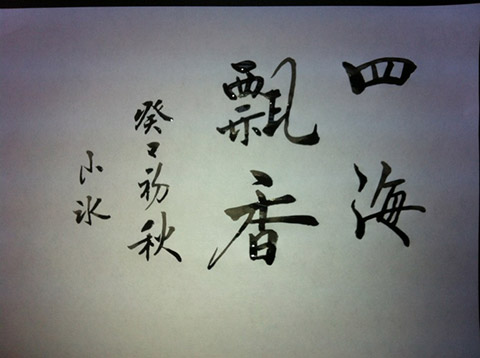 四海
飘香
癸巳初秋
小冰